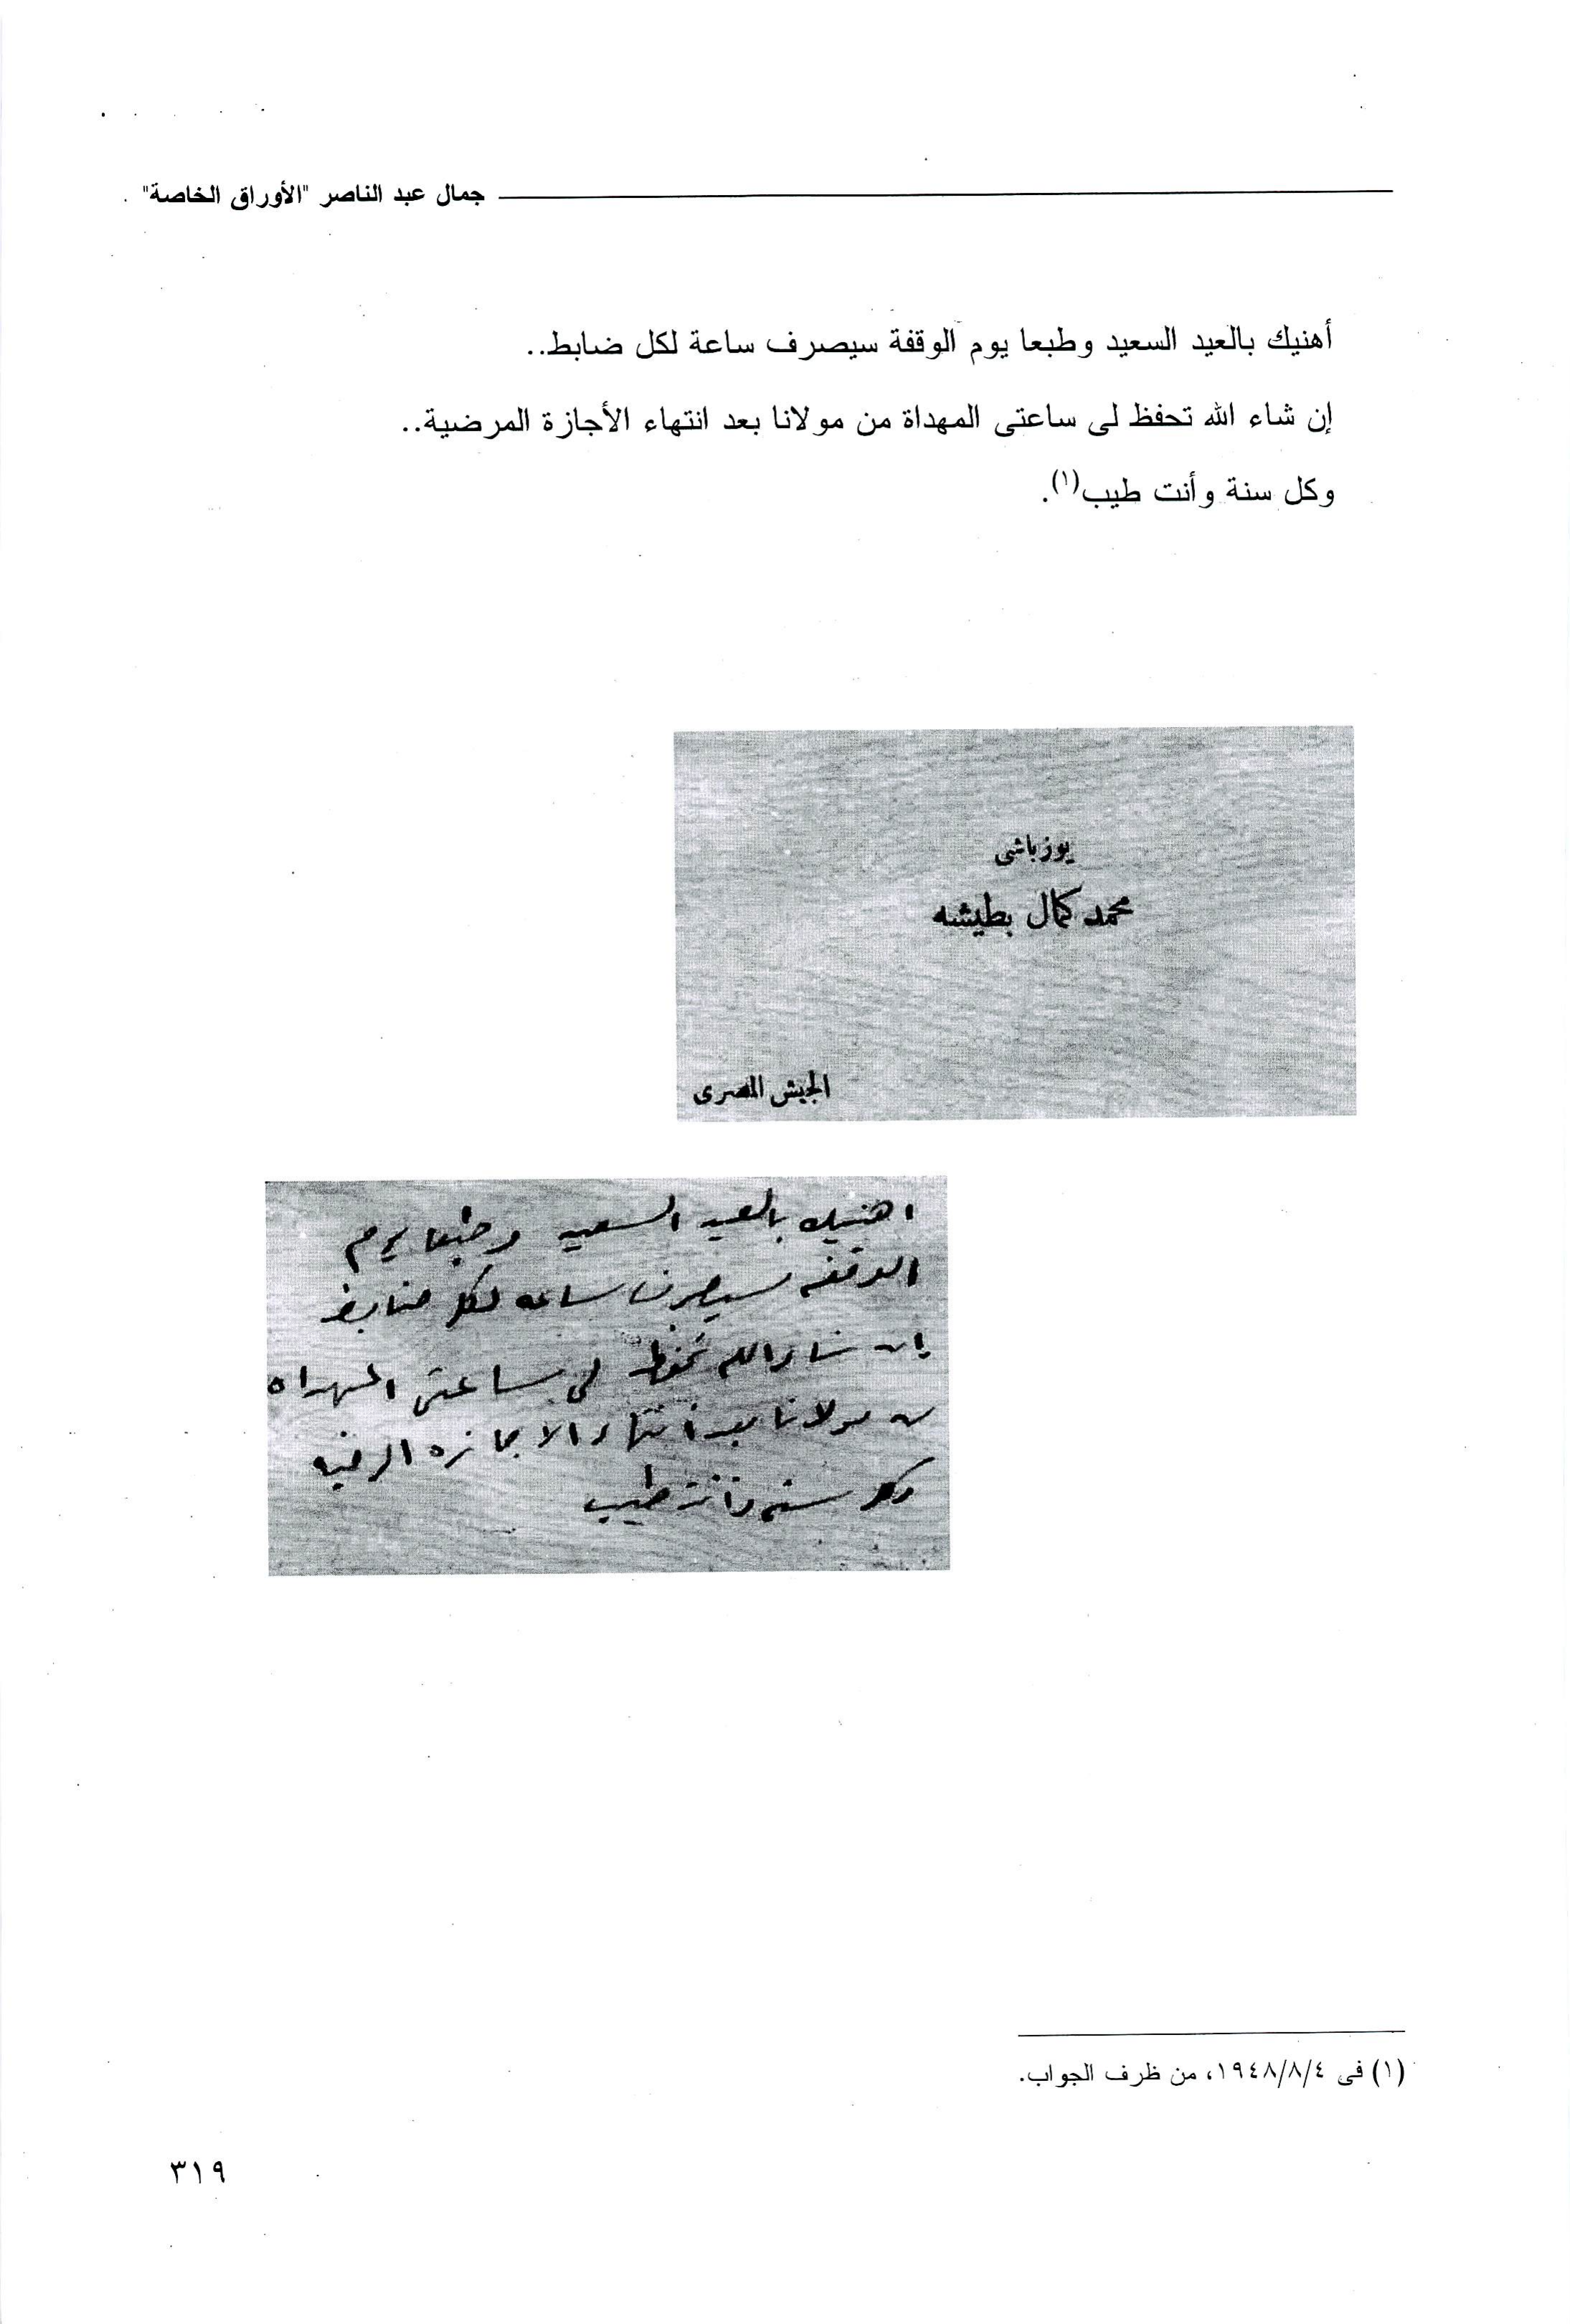 جمال عبد الناصر "الأوراق الخاصة"
أهنيك بالعيد السعيد وطبعا يوم الوقفة سيصرف ساعة لكل ضابط..
إن شاء الله تحفظ لى ساعتى المهداة من مولانا بعد انتهاء الأجازة المرضية..
وكل سنة وأنت طيب(١).
يوزباشى
محمد كمال بطيشه
الجيش المصرى
اهنيك بالعيد السعيد وطبعا يوم
الوقفه سيصرف ساعه لكل ضابط
إن شاء الله تحفظ لى ساعتى المهداه
من مولانا بعد انتهاء الاجازه المرضيه
وكل سنه وانت طيب
(١) فى ١٩٤٨/٨/٤، من ظرف الجواب.
٣١٩